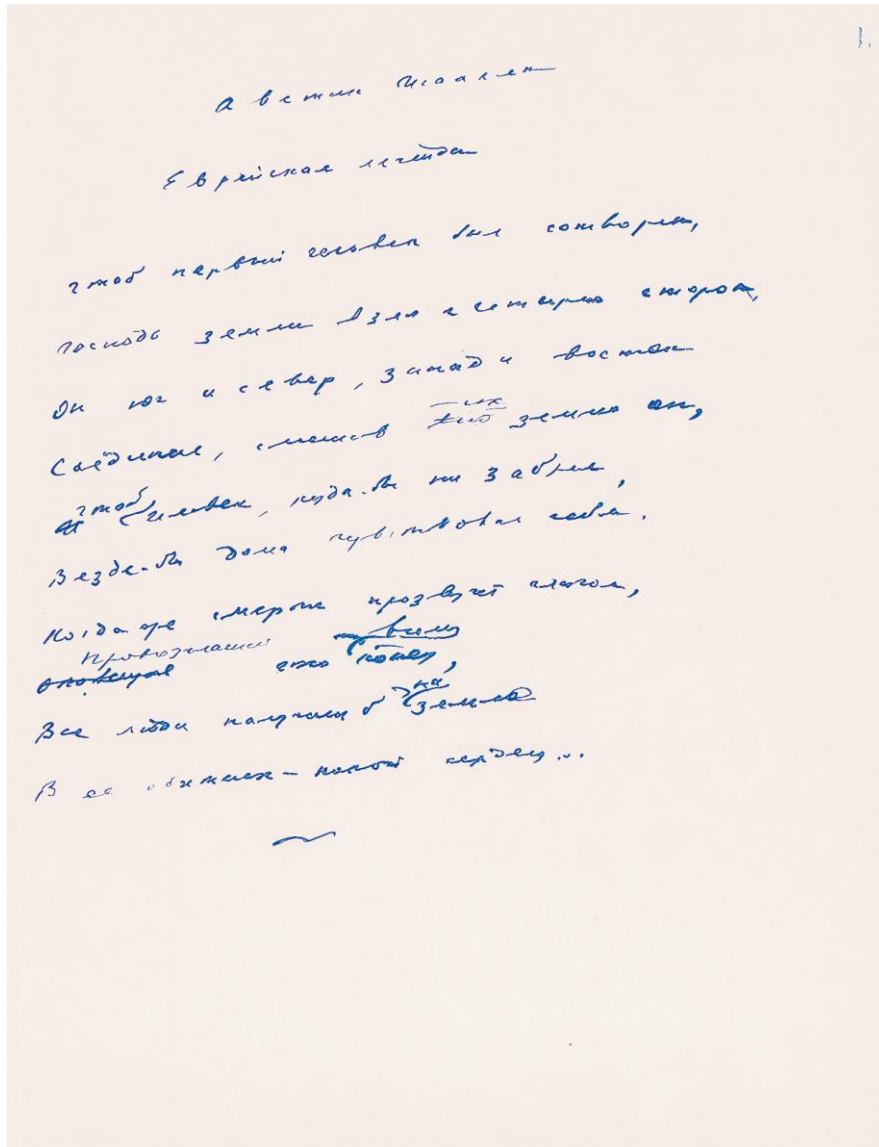 Аветик Исаакян
Еврейская легенда
Чтоб первый человек был сотворен,
Господь земли взял с четырех сторон,
Он юг и север, запад и восток
Соединил, смешав их землю он,
чтоб человек, куда-бы ни забрел,
Везде-бы дома чувствовал себя.
Когда же смерти прозвучит глагол,
провозглашая
что конец,
Все люди б на земле
В ее объятиях – покой сердец...